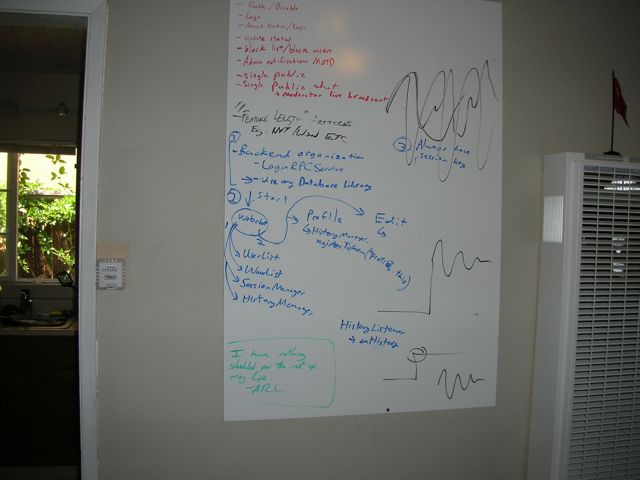 - Enable / Disable
- Logo
- Account Creation/Login
- Update status
- block list/block user
- Admin notifications MOTD
- single public
- Single Public chat
→ Moderator live broadcast
"FEATURE LENGTH" ARTICLES
Eg. NYT/Wired ETC
1
- Backend organization
- Login RPC Service
→ - Use my Database Library
2
↓ start
Website
2
→ Profile
↳ HistoryManager.
registerToken("profile", this)
Edit
↳
→ UserList
→ WordList
→ SessionManager
→ HistoryManager
3 Always have
session key
HistoryListener
→ onHistory
I have nothing
scheduled for the rest of
my life.
-ARL